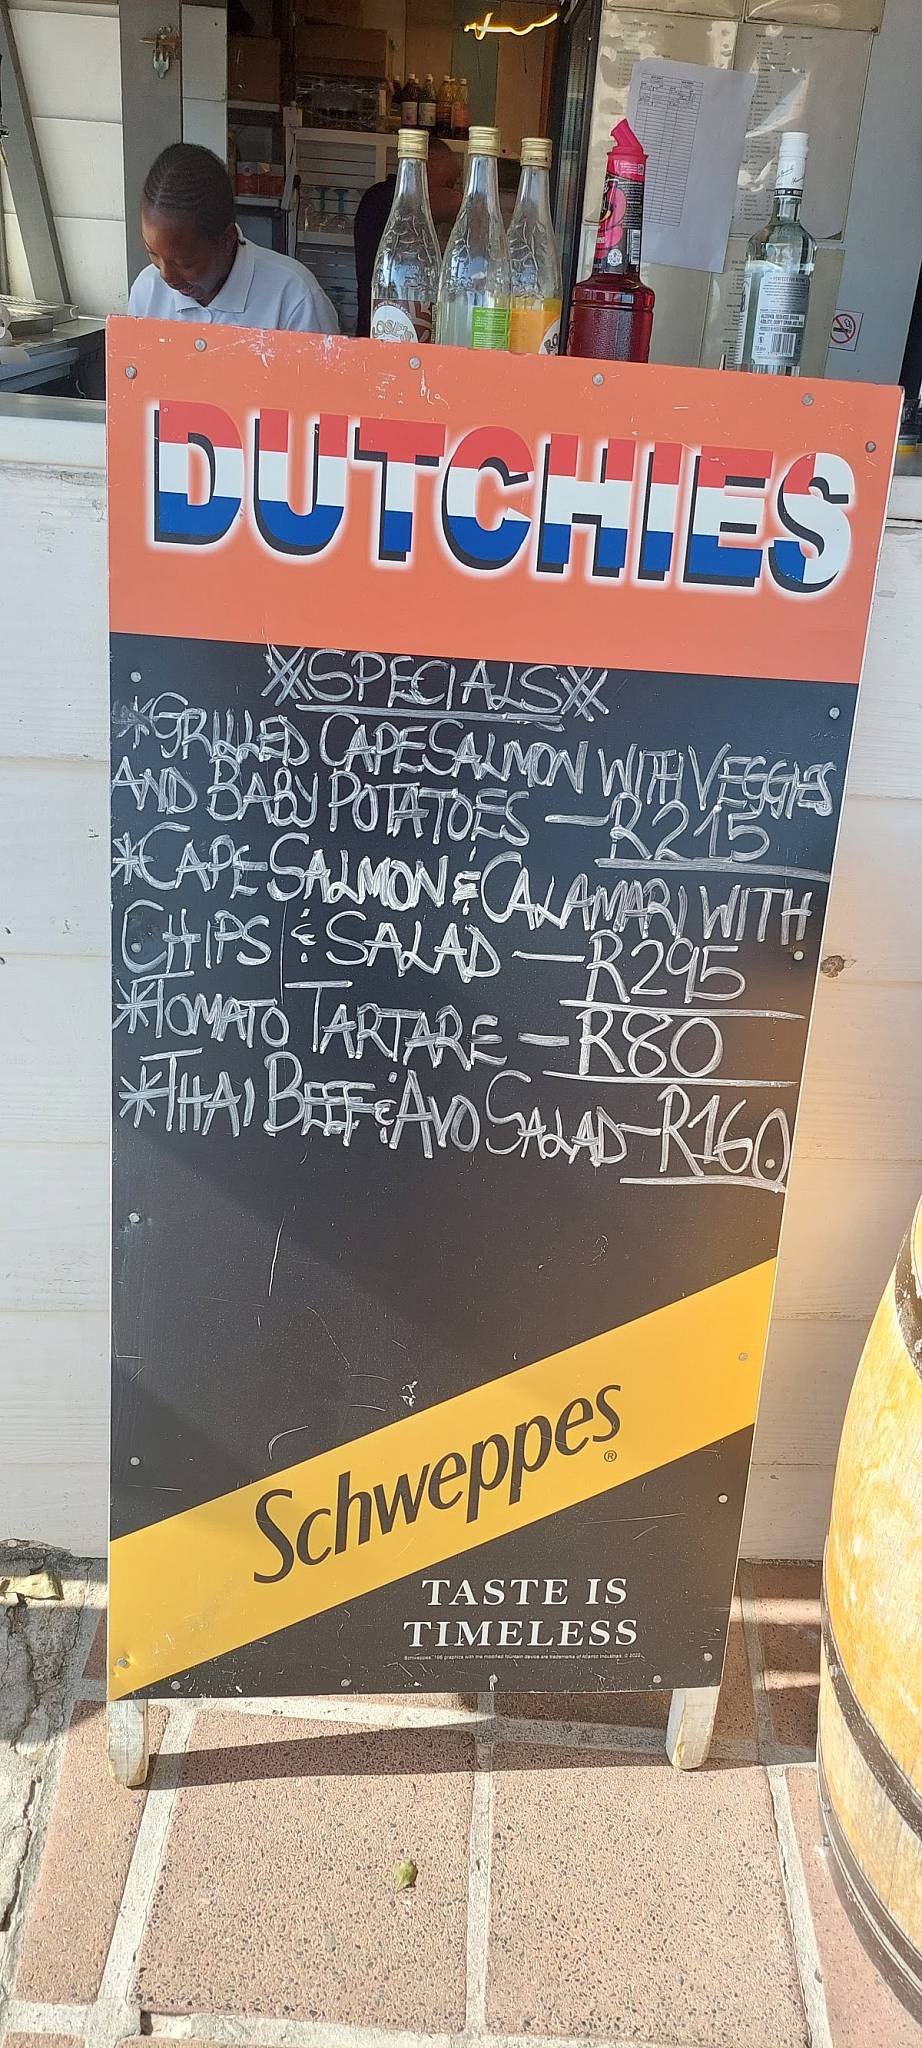 DUTCHIES
*SPECIALS*
*GRILLED CAPE SALMON WITH VEGGIES
AND BABY POTATOES — R215
*CAPE SALMON & CALAMARI WITH
CHIPS & SALAD — R295
*TOMATO TARTARE — R80
*THAI BEEF & AVO SALAD — R160
Schweppes®
TASTE IS
TIMELESS